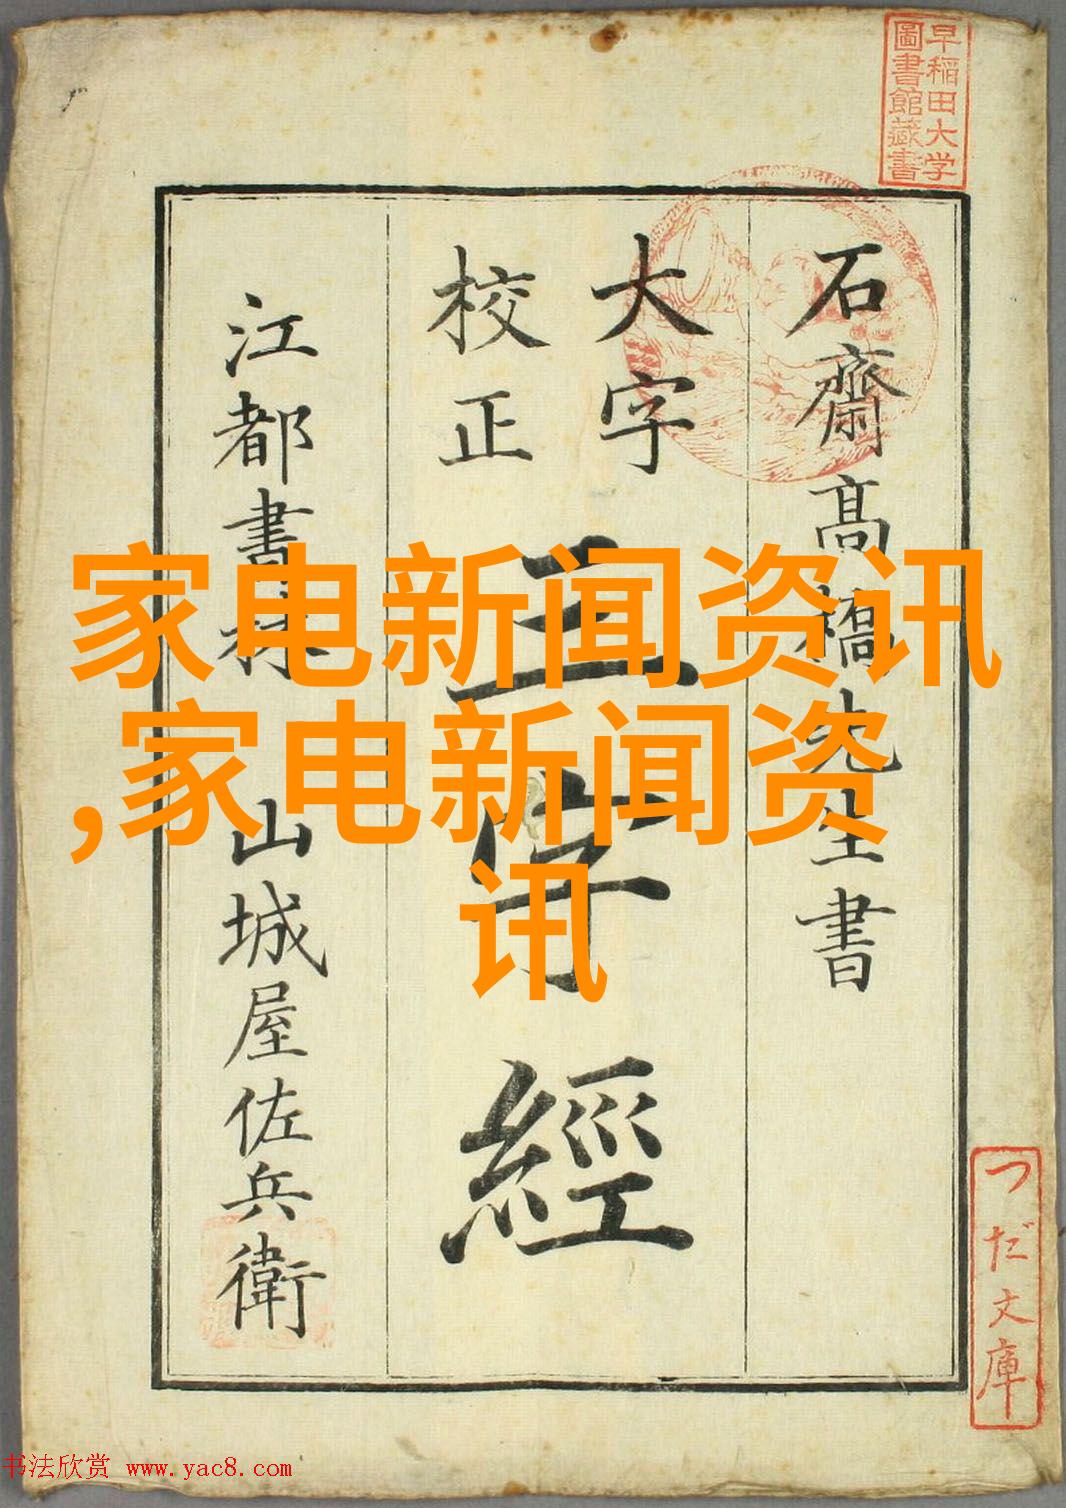 早稲田大学
圖書館藏書
石齋髙橋先生書
大字
校正
三字經
江都書林 山城屋佐兵衛
つだ文庫
家电新闻资讯
,家电新闻资
讯
书法欣赏 www.yac8.com